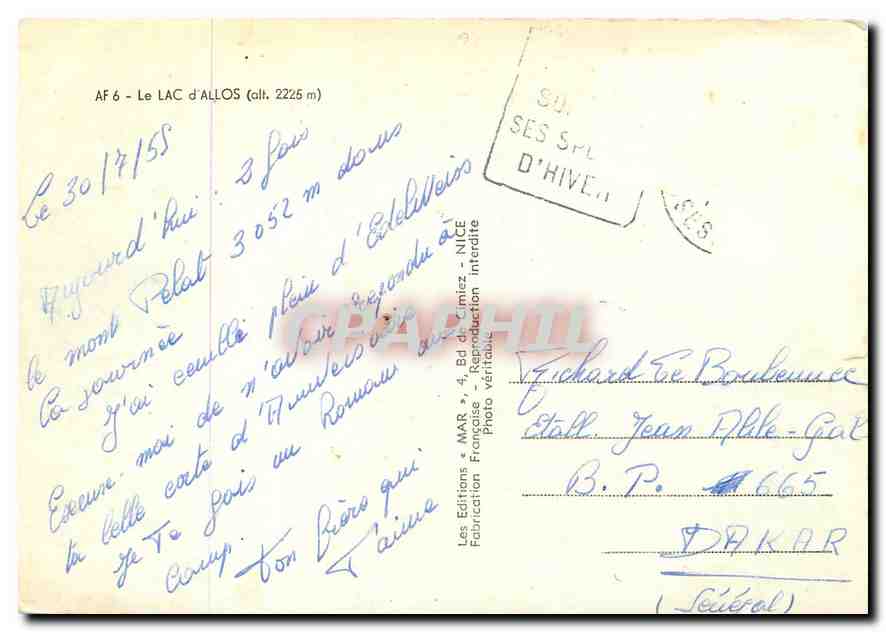 AF 6 - Le LAC d'ALLOS (alt. 2225 m)
Le 30/7/55
Aujourd'hui : 2 fois
le mont Pelat 3052 m dans
la journée
J'ai cueilli plein d'Edelweiss
Excuse moi de n'avoir répondu à
ta belle carte d'Anniversaire
Je Te fais un Roman au
Camp.
Ton frère qui
T'aime
Les Editions « MAR », 4, Bd de Cimiez - NICE
Fabrication Française - Reproduction interdite
Photo véritable
SES SPO
D'HIVER
Richard Le
Etabl. Jean
B. P. 665
DAKAR
(Sénégal)
CPAPHIL